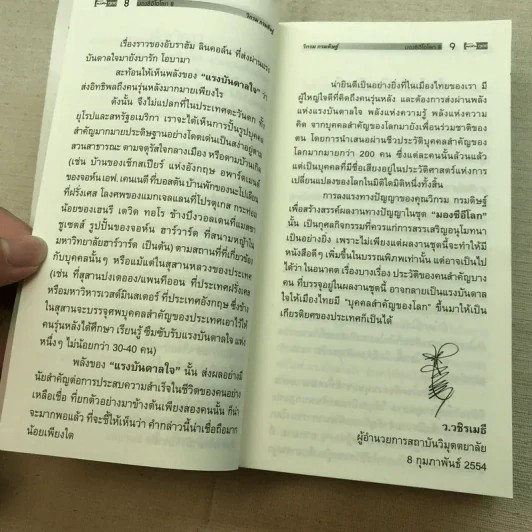 8 มองซีอีโอโลก 8
เรื่องราวของอับราฮัม ลินคอล์น ที่ส่งผ่านแรง
บันดาลใจมายังบารัก โอบามา
สะท้อนให้เห็นพลังของ "แรงบันดาลใจ" ว่า
ส่งอิทธิพลถึงคนรุ่นหลังมากมายเพียงไร
ดังนั้น จึงไม่แปลกที่ในประเทศตะวันตก ทั้ง
ยุโรปและสหรัฐอเมริกา เราจะได้เห็นการปั้นรูปบุคคล
สำคัญมากมายประดิษฐานอย่างโดดเด่นเป็นสง่าอยู่ตาม
สวนสาธารณะ ตามจตุรัสใจกลางเมือง หรือตามบ้านเกิด
(เช่น บ้านของเช็กสเปียร์ แห่งอังกฤษ อพาร์ตเมนต์
ของจอห์น เอฟ. เคนเนดี้ ที่บอสตัน บ้านพักของนะโปเลียน
ที่ฝรั่งเศส โลงศพของแมกเจลแลนที่โปรตุเกส กระท่อม
น้อยของเฮนรี เดวิด ทอโร ข้างบึงวอลเดนที่แมสซา
ชูเซตส์ รูปปั้นของจอห์น ฮาร์วาร์ด ที่สนามหญ้าใน
มหาวิทยาลัยฮาร์วาร์ด เป็นต้น) ตามสถานที่ที่เกี่ยวข้อง
กับบุคคลนั้นๆ หรือแม้แต่ในสุสานหลวงของประเทศ
(เช่น ที่สุสานปงเตออง/แพนทีออน ที่ประเทศฝรั่งเศส
หรือมหาวิหารเวสต์มินสเตอร์ ที่ประเทศอังกฤษ ซึ่งข้าง
ในสุสานจะบรรจุศพบุคคลสำคัญของประเทศเอาไว้ให้
คนรุ่นหลังได้ศึกษา เรียนรู้ ซึมซับรับแรงบันดาลใจ แห่ง
หนึ่งๆ ไม่น้อยกว่า 30-40 คน)
พลังของ "แรงบันดาลใจ" นั้น ส่งผลอย่างมี
นัยสำคัญต่อการประสบความสำเร็จในชีวิตของคนอย่าง
เหลือเชื่อ ที่ยกตัวอย่างมาข้างต้นเพียงสองคนนั้น ก็น่า
จะมากพอแล้ว ที่จะชี้ให้เห็นว่า คำกล่าวนี้น่าเชื่อถือมาก
น้อยเพียงใด
วิกรม กรมดิษฐ์ มองซีอีโอโลก 8 9
น่ายินดีเป็นอย่างยิ่งที่ในเมืองไทยของเรา มี
ผู้ใหญ่ใจดีที่คิดถึงคนรุ่นหลัง และต้องการส่งผ่านพลัง
แห่งแรงบันดาลใจ พลังแห่งความรู้ พลังแห่งความ
คิด จากบุคคลสำคัญของโลกมายังเพื่อนร่วมชาติของ
ตน โดยการนำเสนอผ่านชีวประวัติบุคคลสำคัญของ
โลกมากมายกว่า 200 คน ซึ่งแต่ละคนนั้นล้วนแล้ว
แต่เป็นบุคคลที่มีชื่อเสียงอยู่ในประวัติศาสตร์แห่งการ
เปลี่ยนแปลงของโลกในมิติใดมิติหนึ่งทั้งสิ้น
การลงแรงทางปัญญาของคุณวิกรม กรมดิษฐ์
เพื่อสร้างสรรค์ผลงานทางปัญญาในชุด "มองซีอีโลก"
นั้น เป็นกุศลกิจกรรมที่ควรแก่การสรรเสริญอนุโมทนา
เป็นอย่างยิ่ง เพราะไม่เพียงแต่ผลงานชุดนี้จะทำให้มี
หนังสือดีๆ เพิ่มขึ้นในบรรณพิภพเท่านั้น แต่อาจเป็นไป
ได้ว่าในอนาคต เรื่องบางเรื่อง ประวัติของคนสำคัญบาง
คน ที่บรรจุอยู่ในผลงานชุดนี้ อาจกลายเป็นแรงบันดาล
ใจให้เมืองไทยมี "บุคคลสำคัญของโลก" ขึ้นมาให้เป็น
เกียรติยศของประเทศก็เป็นได้
ว.วชิรเมธี
ผู้อำนวยการสถาบันวิมุตตยาลัย
8 กุมภาพันธ์ 2554